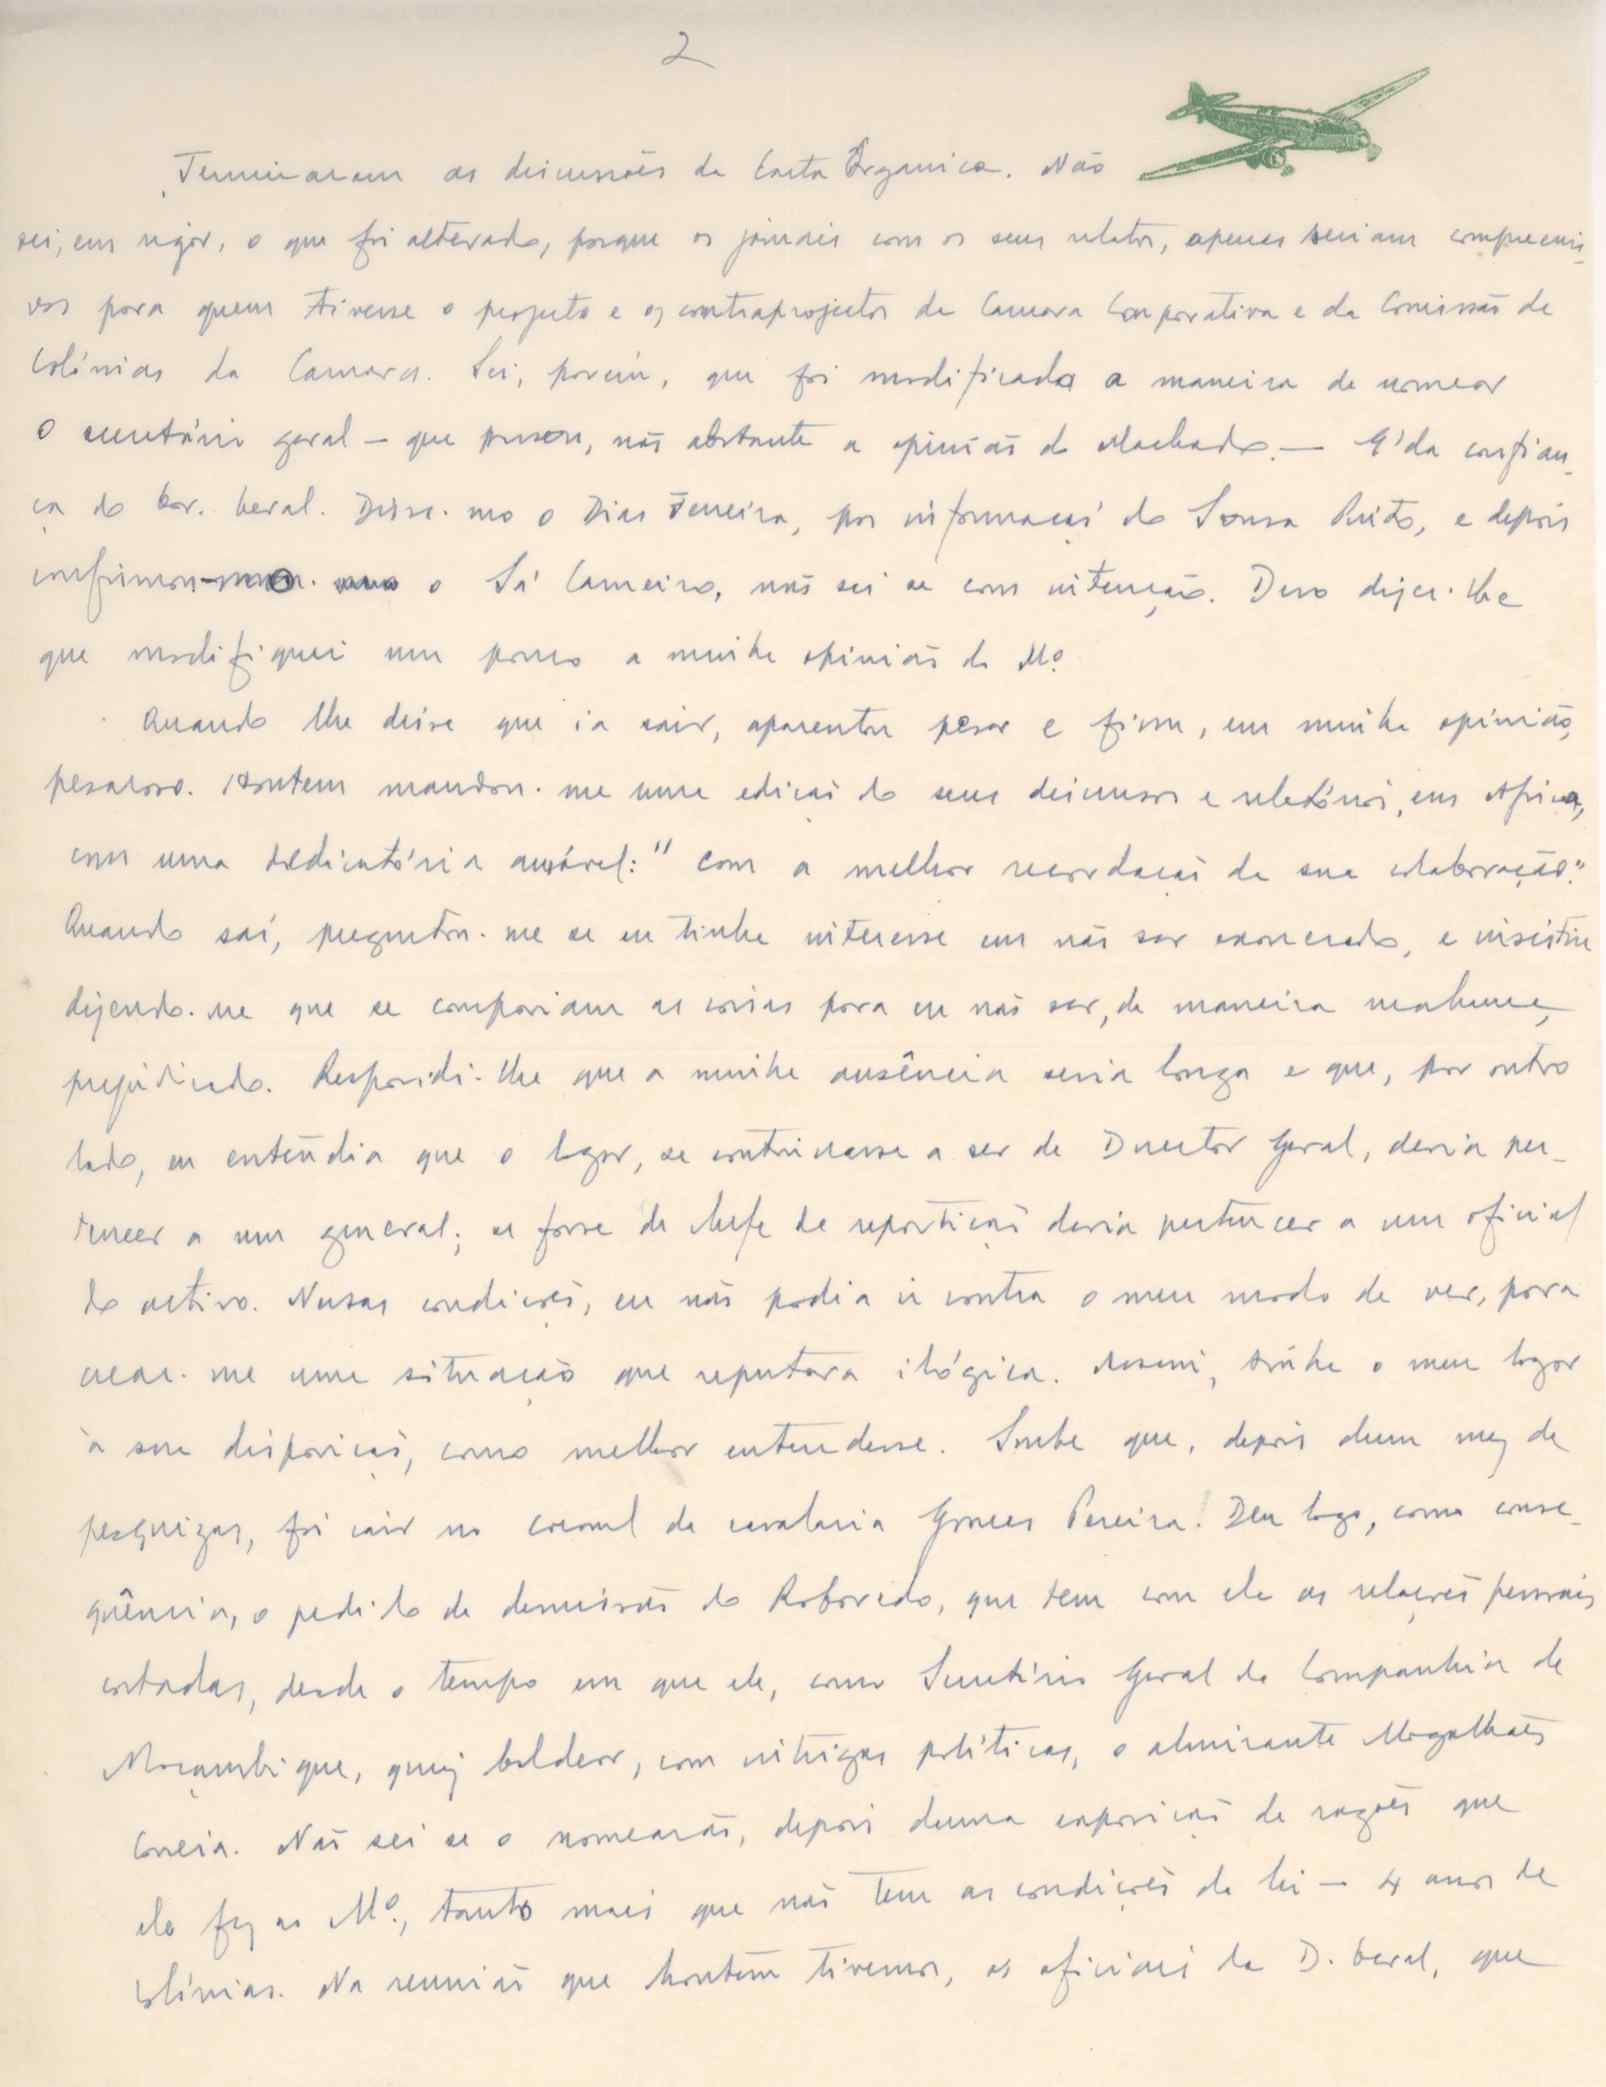 2
Terminaram as discussões da Carta Organica. Não
sei, em rigor, o que foi alterado, porque os jornais com os seus relatos, apenas seriam compreensi-
vos para quem tivesse o projecto e os contraprojectos da Camara Corporativa e da Comissão de
Colónias da Camara. Sei, porém, que foi modificada a maneira de nomear
o secretário geral — que passou, não obstante a opinião do Machado — É da confian-
ça do Gov. Geral. Disse-mo o Dias Ferreira, por informação do Sousa Pinto, e depois
confirmou-mo o Sá Carneiro, não sei se com intenção. Devo dizer-lhe
que modifiquei um pouco a minha opinião do Mº.
Quando lhe disse que ia sair, aparentou pesar e ficou, em minha opinião,
pesaroso. Hontem mandou-me uma edição do seus discursos e relatórios, em Africa,
com uma dedicatória amável: "com a melhor recordação da sua colaboração".
Quando saí, preguntou-me se eu tinha interesse em não ser exonerado, e insistiu
dizendo-me que se comporiam as coisas para eu não ser, de maneira nenhuma,
prejudicado. Respondi-lhe que a minha ausência seria longa e que, por outro
lado, eu entendia que o logar, se continuasse a ser de Director Geral, devia per-
tencer a um general; se fosse de chefe de repartição devia pertencer a um oficial
do activo. Nessas condições, eu não podia ir contra o meu modo de ver, para
crear-me uma situação que reputava ilógica. Assim, tinha o meu logar
à sua disposição, como melhor entendesse. Soube que, depois dum mez de
pesquizas, foi cair no coronel de cavalaria Pereira! Deu logo, como conse-
quência, o pedido de demissão do Roboredo, que tem com ele as relações pessoais
cortadas, desde o tempo em que ele, como Secretário Geral da Companhia de
Moçambique, quiz baldear, com intrigas políticas, o almirante Magalhães
Correia. Não sei se o nomearão, depois duma exposição de razões que
ele fez ao Mº., tanto mais que não tem as condições da lei — 4 anos de
colónias. Na reunião que hontem tivemos, os oficiais da D. Geral, que